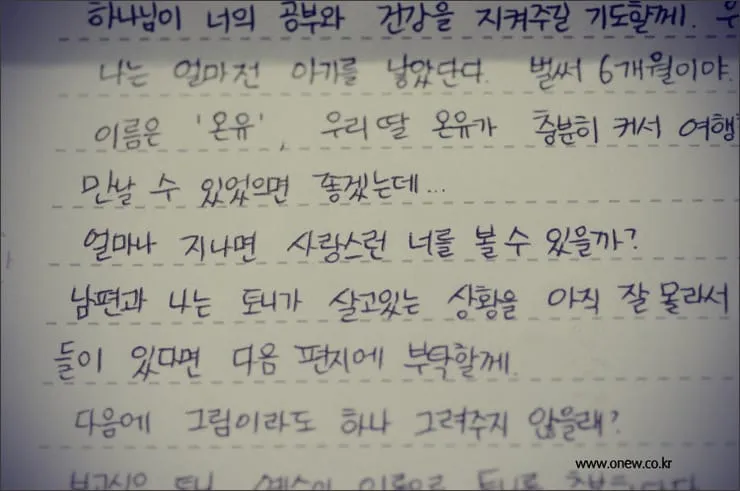 하나님이 너의 공부와 건강을 지켜주길 기도할께!
나는 얼마전 아기를 낳았단다. 벌써 6개월이야.
이름은 '온유', 우리딸 온유가 충분히 커서 여행
만날 수 있었으면 좋겠는데...
얼마나 지나면 사랑스런 너를 볼 수 있을까?
남편과 나는 토니가 살고있는 상황을 아직 잘 몰라서
들이 있다면 다음 편지에 부탁할께.
다음에 그림이라도 하나 그려주지 않을래?
www.onew.co.kr